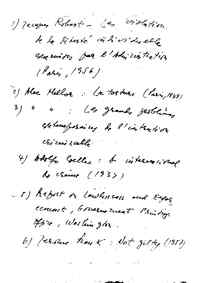 1) Jacques Robert - Les violations
de la liberté individuelle
commises par l'Administration
(Paris, 1956)
2) Alec Mellor: La torture (Paris, 1949)
3) " " : Les grands problèmes
contemporains de l'instruction
criminelle
4) Adolfo Coelho: O internacional
do crime (1937)
5) Report on Lawlessness and
Government Printing
Office, Washington.
6) Jerome Frank: Not guilty (1957)